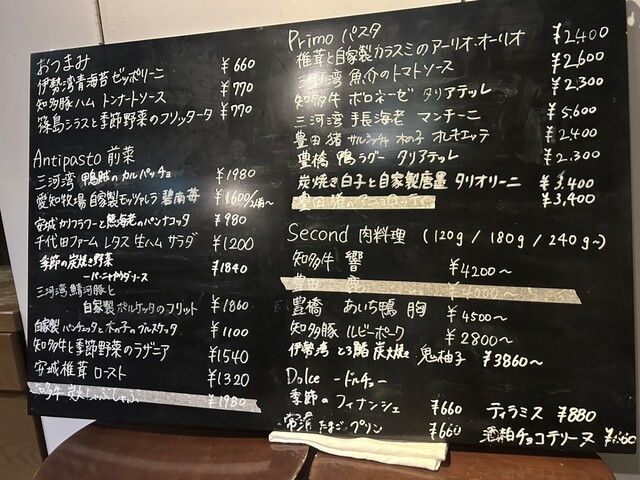 おつまみ
伊勢湾青海苔ゼッポリーニ ¥660
知多豚ハム トンナートソース ¥770
篠島シラスと季節野菜のフリッタータ ¥770
Antipasto 前菜
三河湾 のカルパッチョ ¥1980
愛知牧場自家製モッツァレラ 碧南苺 ¥1600/2個~
安城カリフラワーと熱海老のパンナコッタ ¥980
千代田ファーム レタス 生ハム サラダ ¥1200
季節の炭焼き野菜
-バーニャカウダソース ¥1840
三河湾 鯖河豚と
自家製ポルケッタのフリット ¥1860
自家製パンチェッタと木の子のブルスケッタ ¥1100
知多牛と季節野菜のラザニア ¥1540
安城椎茸 ロースト ¥1320
知多牛 しゃぶしゃぶ ¥1980
Primo パスタ
椎茸と自家製カラスミのアーリオ・オーリオ ¥2,400
三河湾 魚介のトマトソース ¥2,600
知多牛 ボロネーゼ タリアテッレ ¥2,300
三河湾 手長海老 マンチーニ ¥5,600
豊田 猪 サルシッチャ 木の子 オレキエッテ ¥2,400
豊橋 鴨ラグー タリアテッレ ¥2,300
炭焼き白子と自家製唐墨 タリオリーニ ¥3,400
豊田猪の ¥3,400
Second 肉料理 (120g / 180g / 240g~)
知多牛 響 ¥4200~
豊田 鹿 ¥4000~
豊橋 あいち鴨 胸 ¥4500~
知多豚 ルビーポーク ¥2800~
伊勢湾 とろ鰆 炭火焼き 鬼柚子 ¥3860~
Dolce -ドルチェ-
季節の フィナンシェ ¥660 ティラミス ¥880
常滑 たまご プリン ¥660 酒粕チョコテリーヌ